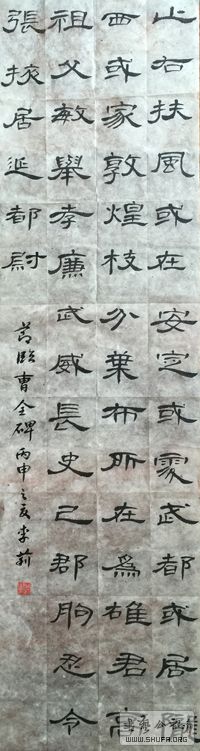 止右扶風或在安定或處武都或居隴
西或家敦煌枝分葉布所在為雄君高
祖父敏舉孝廉武威長史巴郡朐忍令
張掖居延都尉
節臨曹全碑丙申之夏李莉
WWW.SHUFA.ORG